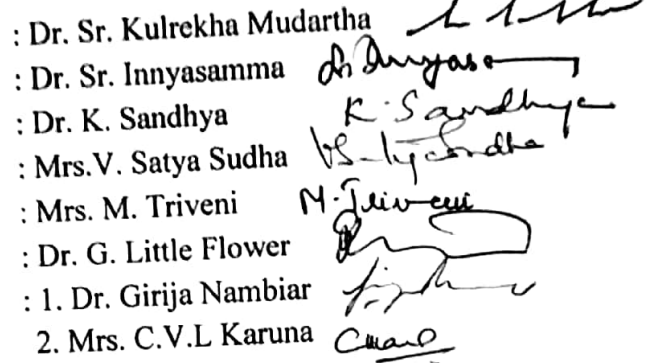 : Dr. Sr. Kulrekha Mudartha
: Dr. Sr. Innyasamma
: Dr. K. Sandhya K. Sandhya
: Mrs.V. Satya Sudha
: Mrs. M. Triveni M. Triveni
: Dr. G. Little Flower
: 1. Dr. Girija Nambiar
2. Mrs. C.V.L Karuna